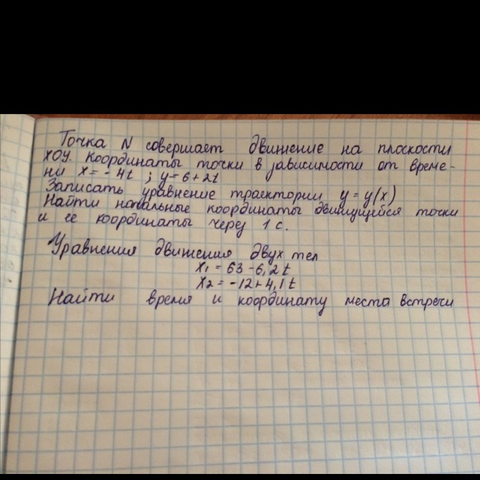 Точка N совершает движение на плоскости
ХОУ. Координаты точки в зависимости от време-
ни x = - 4t ; y = 6 + 2t
Записать уравнение траектории y = y(x)
Найти начальные координаты движущейся точки
и её координаты через 1 с.
Уравнения движения двух тел
x1 = 63 - 6,2t
x2 = -12 + 4,1t
Найти время и координату места встречи